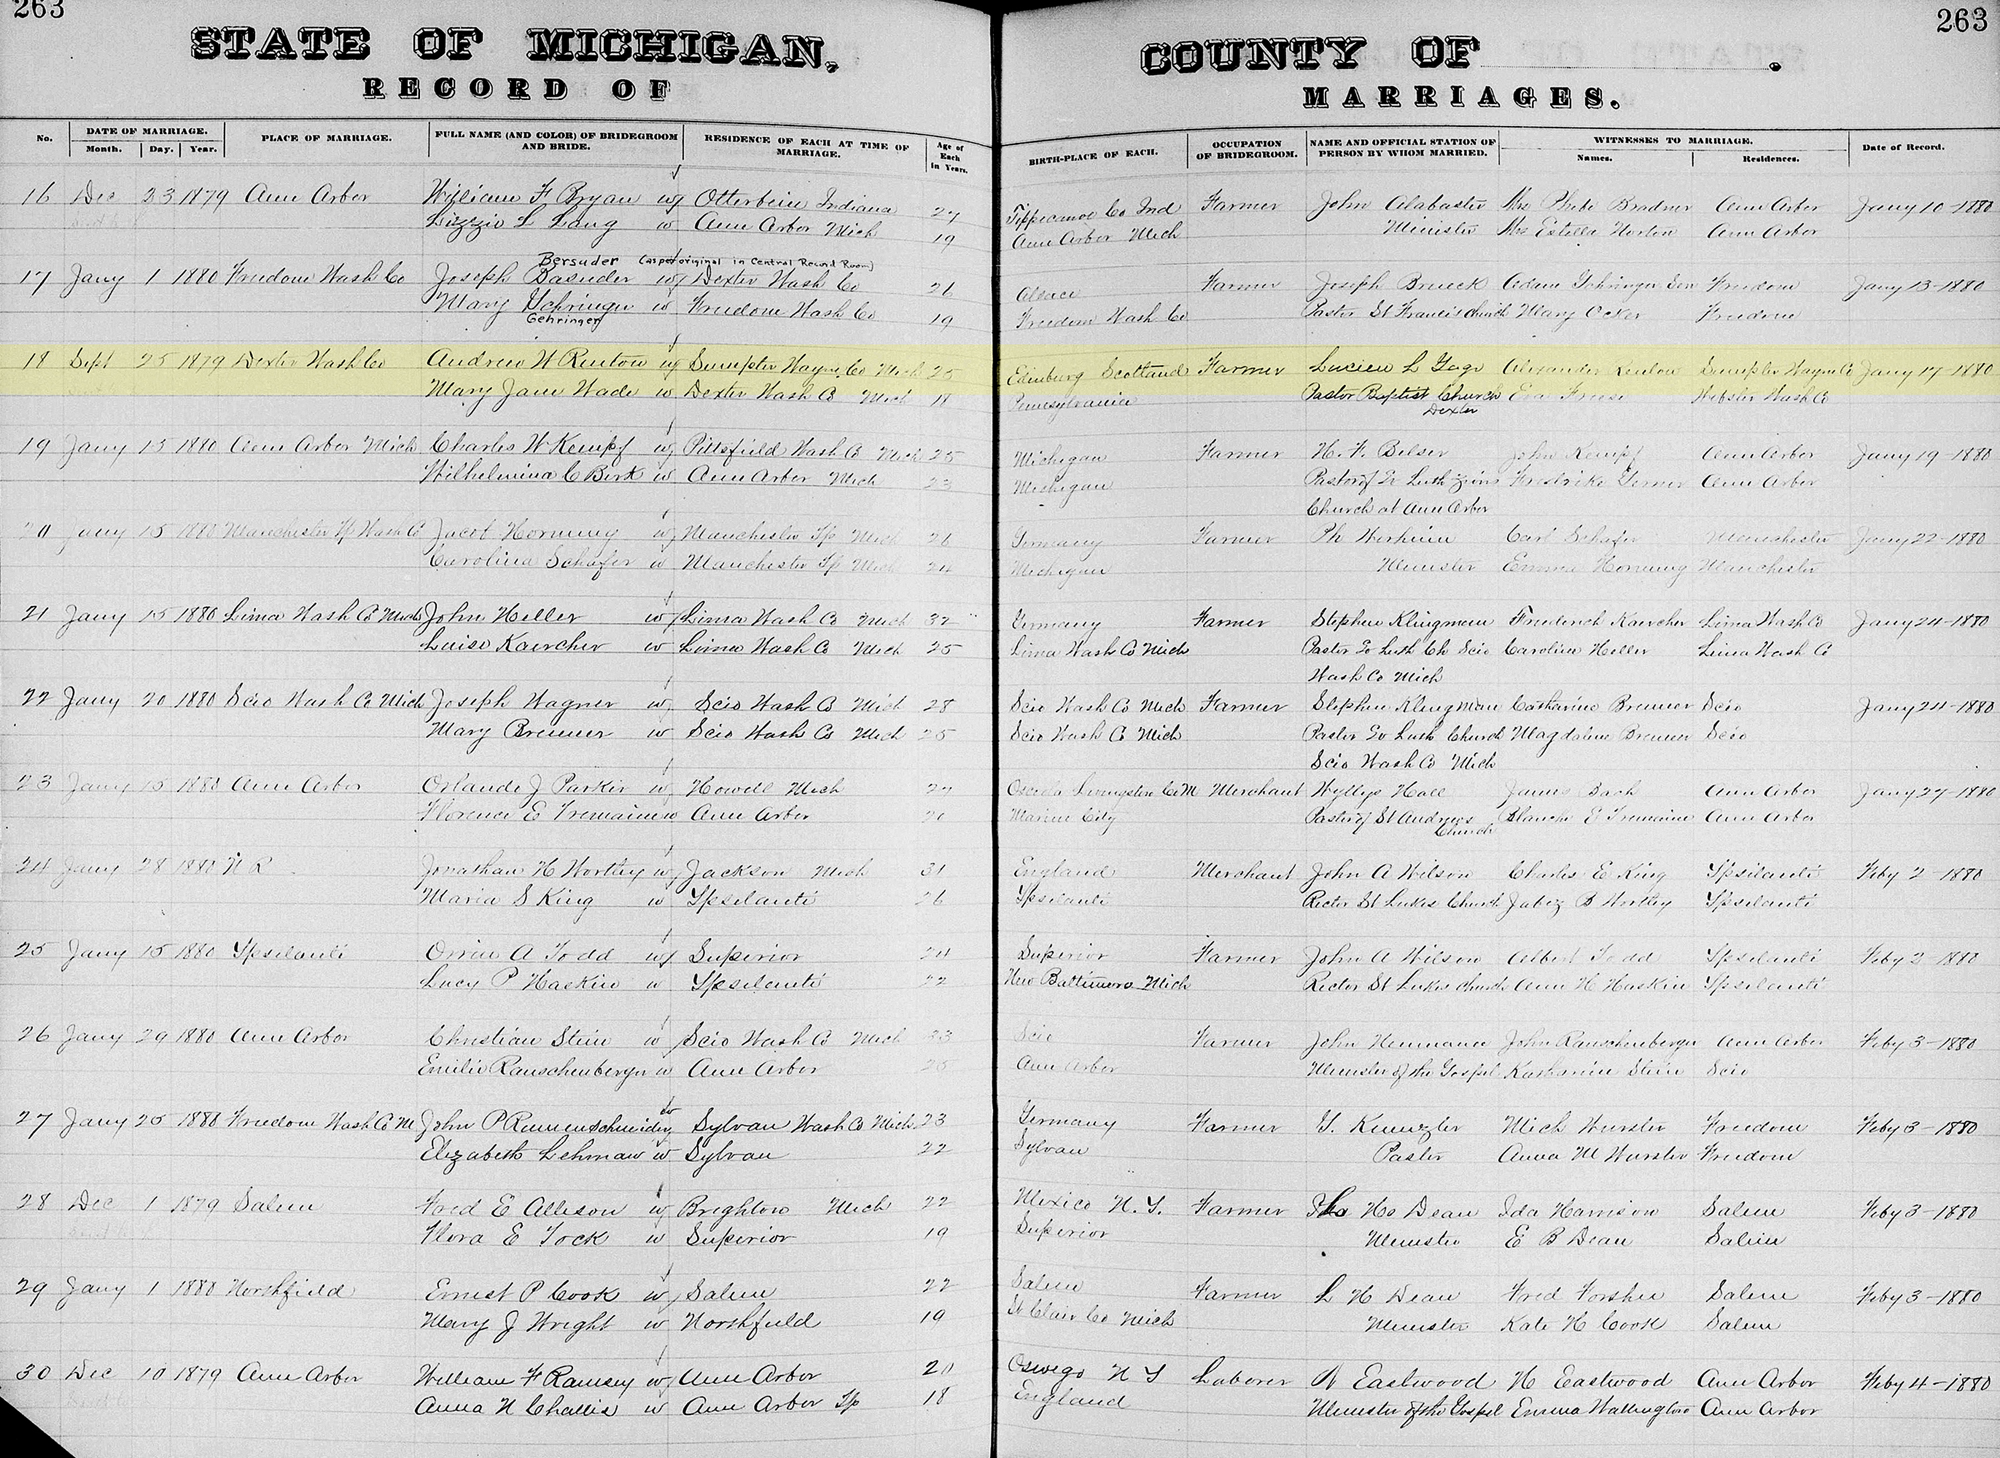 263
263
STATE OF MICHIGAN,
COUNTY OF .
RECORD OF
MARRIAGES.
No. DATE OF MARRIAGE. PLACE OF MARRIAGE. FULL NAME (AND COLOR) OF BRIDEGROOM AND BRIDE. RESIDENCE OF EACH AT TIME OF MARRIAGE. Age of Each in Years. BIRTH-PLACE OF EACH. OCCUPATION OF BRIDEGROOM. NAME AND OFFICIAL STATION OF PERSON BY WHOM MARRIED. WITNESSES TO MARRIAGE. Date of Record.
Month. Day. Year. Names. Residences.
16 Dec 23 1879 Ann Arbor William F Bryan w Otterbein Indiana 27 Tippecanoe Co Ind Farmer John Alabaster Mrs Phebe Bradner Ann Arbor Jany 10-1880
Lizzie L Lang w Ann Arbor Mich 19 Ann Arbor Mich Minister Mrs Estella Norton Ann Arbor
Bersuder (as per original in Central Record Room)
17 Jany 1 1880 Freedom Wash Co Joseph Basuder w Dexter Wash Co 26 Alsace Farmer Joseph Brueck Adam Gehringer Sen Freedom Jany 13-1880
Mary Gehringer w Freedom Wash Co 19 Freedom Wash Co Pastor St Francis church Mary Ocker Freedom
Gehringer
18 Sept 25 1879 Dexter Wash Co Andrew W Renton w Sumpter Wayne Co Mich 25 Edinburg Scotland Farmer Lucien L Gage Alexander Renton Sumpter Wayne Co Jany 17-1880
Mary Jane Wade w Dexter Wash Co Mich 18 Pennsylvania Pastor Baptist Church Eva Webster Wash Co
Dexter
19 Jany 15 1880 Ann Arbor Mich Charles W Kempf w Pittsfield Wash Co Mich 25 Michigan Farmer H. F. Belser John Kempf Ann Arbor Jany 19-1880
Wilhelmina C Birk w Ann Arbor Mich 23 Michigan Pastor of Ev Luth Zions Fredrike Ann Arbor
Church at Ann Arbor
20 Jany 15 1880 Manchester Tp Wash Co Jacob Hornung w Manchester Tp Mich 26 Germany Farmer Ph Werheim Carl Schafer Manchester Jany 22-1880
Carolina Schafer w Manchester Tp Mich 24 Michigan Minister Emma Hornung Manchester
21 Jany 15 1880 Lima Wash Co Mich John Heller w Lima Wash Co Mich 32 Germany Farmer Stephen Klingman Frederick Kaercher Lima Wash Co Jany 24-1880
Luise Kaercher w Lima Wash Co Mich 25 Lima Wash Co Mich Pastor Ev Luth Ch Scio Caroline Heller Lima Wash Co
Wash Co Mich
22 Jany 20 1880 Scio Wash Co Mich Joseph Wagner w Scio Wash Co Mich 28 Scio Wash Co Mich Farmer Stephen Klingman Catharine Brenner Scio Jany 24-1880
Mary Brenner w Scio Wash Co Mich 25 Scio Wash Co Mich Pastor Ev Luth Church Magdalene Brenner Scio
Scio Wash Co Mich
23 Jany 15 1880 Ann Arbor Orlando J Parker w Howell Mich 27 Osceola Livingston Co M Merchant Wyllys Hall James Bach Ann Arbor Jany 27-1880
Florence E Tremaine w Ann Arbor 20 Marine City Pastor of St Andrews Blanche E Tremaine Ann Arbor
Church
24 Jany 28 1880 N R Jonathan H Wortley w Jackson Mich 31 England Merchant John A Wilson Charles E King Ypsilanti Feby 2-1880
Maria S King w Ypsilanti 26 Ypsilanti Rector St Lukes Church Jabez B Wortley Ypsilanti
25 Jany 15 1880 Ypsilanti Orrin A Todd w Superior 24 Superior Farmer John A Wilson Albert Todd Ypsilanti Feby 2-1880
Lucy P Haskin w Ypsilanti 22 New Baltimore Mich Rector St Lukes church Ann H Haskin Ypsilanti
26 Jany 29 1880 Ann Arbor Christian Stein w Scio Wash Co Mich 33 Scio Farmer John Neumann John Rauschenberger Ann Arbor Feby 3-1880
Emilie Rauschenberger w Ann Arbor 25 Ann Arbor Minister of the Gospel Katharine Stein Scio
27 Jany 25 1880 Freedom Wash Co M John P Riemenschneider w Sylvan Wash Co Mich 23 Germany Farmer G. Kuenzler Mich Wurster Freedom Feby 3-1880
Elizabeth Lehman w Sylvan 22 Sylvan Pastor Anna M Wurster Freedom
28 Dec 1 1879 Salem Fred E Allison w Brighton Mich 22 Mexico N.Y. Farmer L H Dean Ida Harrison Salem Feby 3-1880
Flora E Tock w Superior 19 Superior Minister E B Dean Salem
29 Jany 1 1880 Northfield Ernest P Cook w Salem 22 Salem Farmer L H Dean Fred Forshee Salem Feby 3-1880
Mary J Wright w Northfield 19 St Clair Co Mich Minister Kate H Cook Salem
30 Dec 10 1879 Ann Arbor William F Ramsey w Ann Arbor 20 Oswego N Y Laborer N Eastwood H Eastwood Ann Arbor Feby 4-1880
Anna N Challis w Ann Arbor Tp 18 England Minister of the Gospel Emma Wallington Ann Arbor